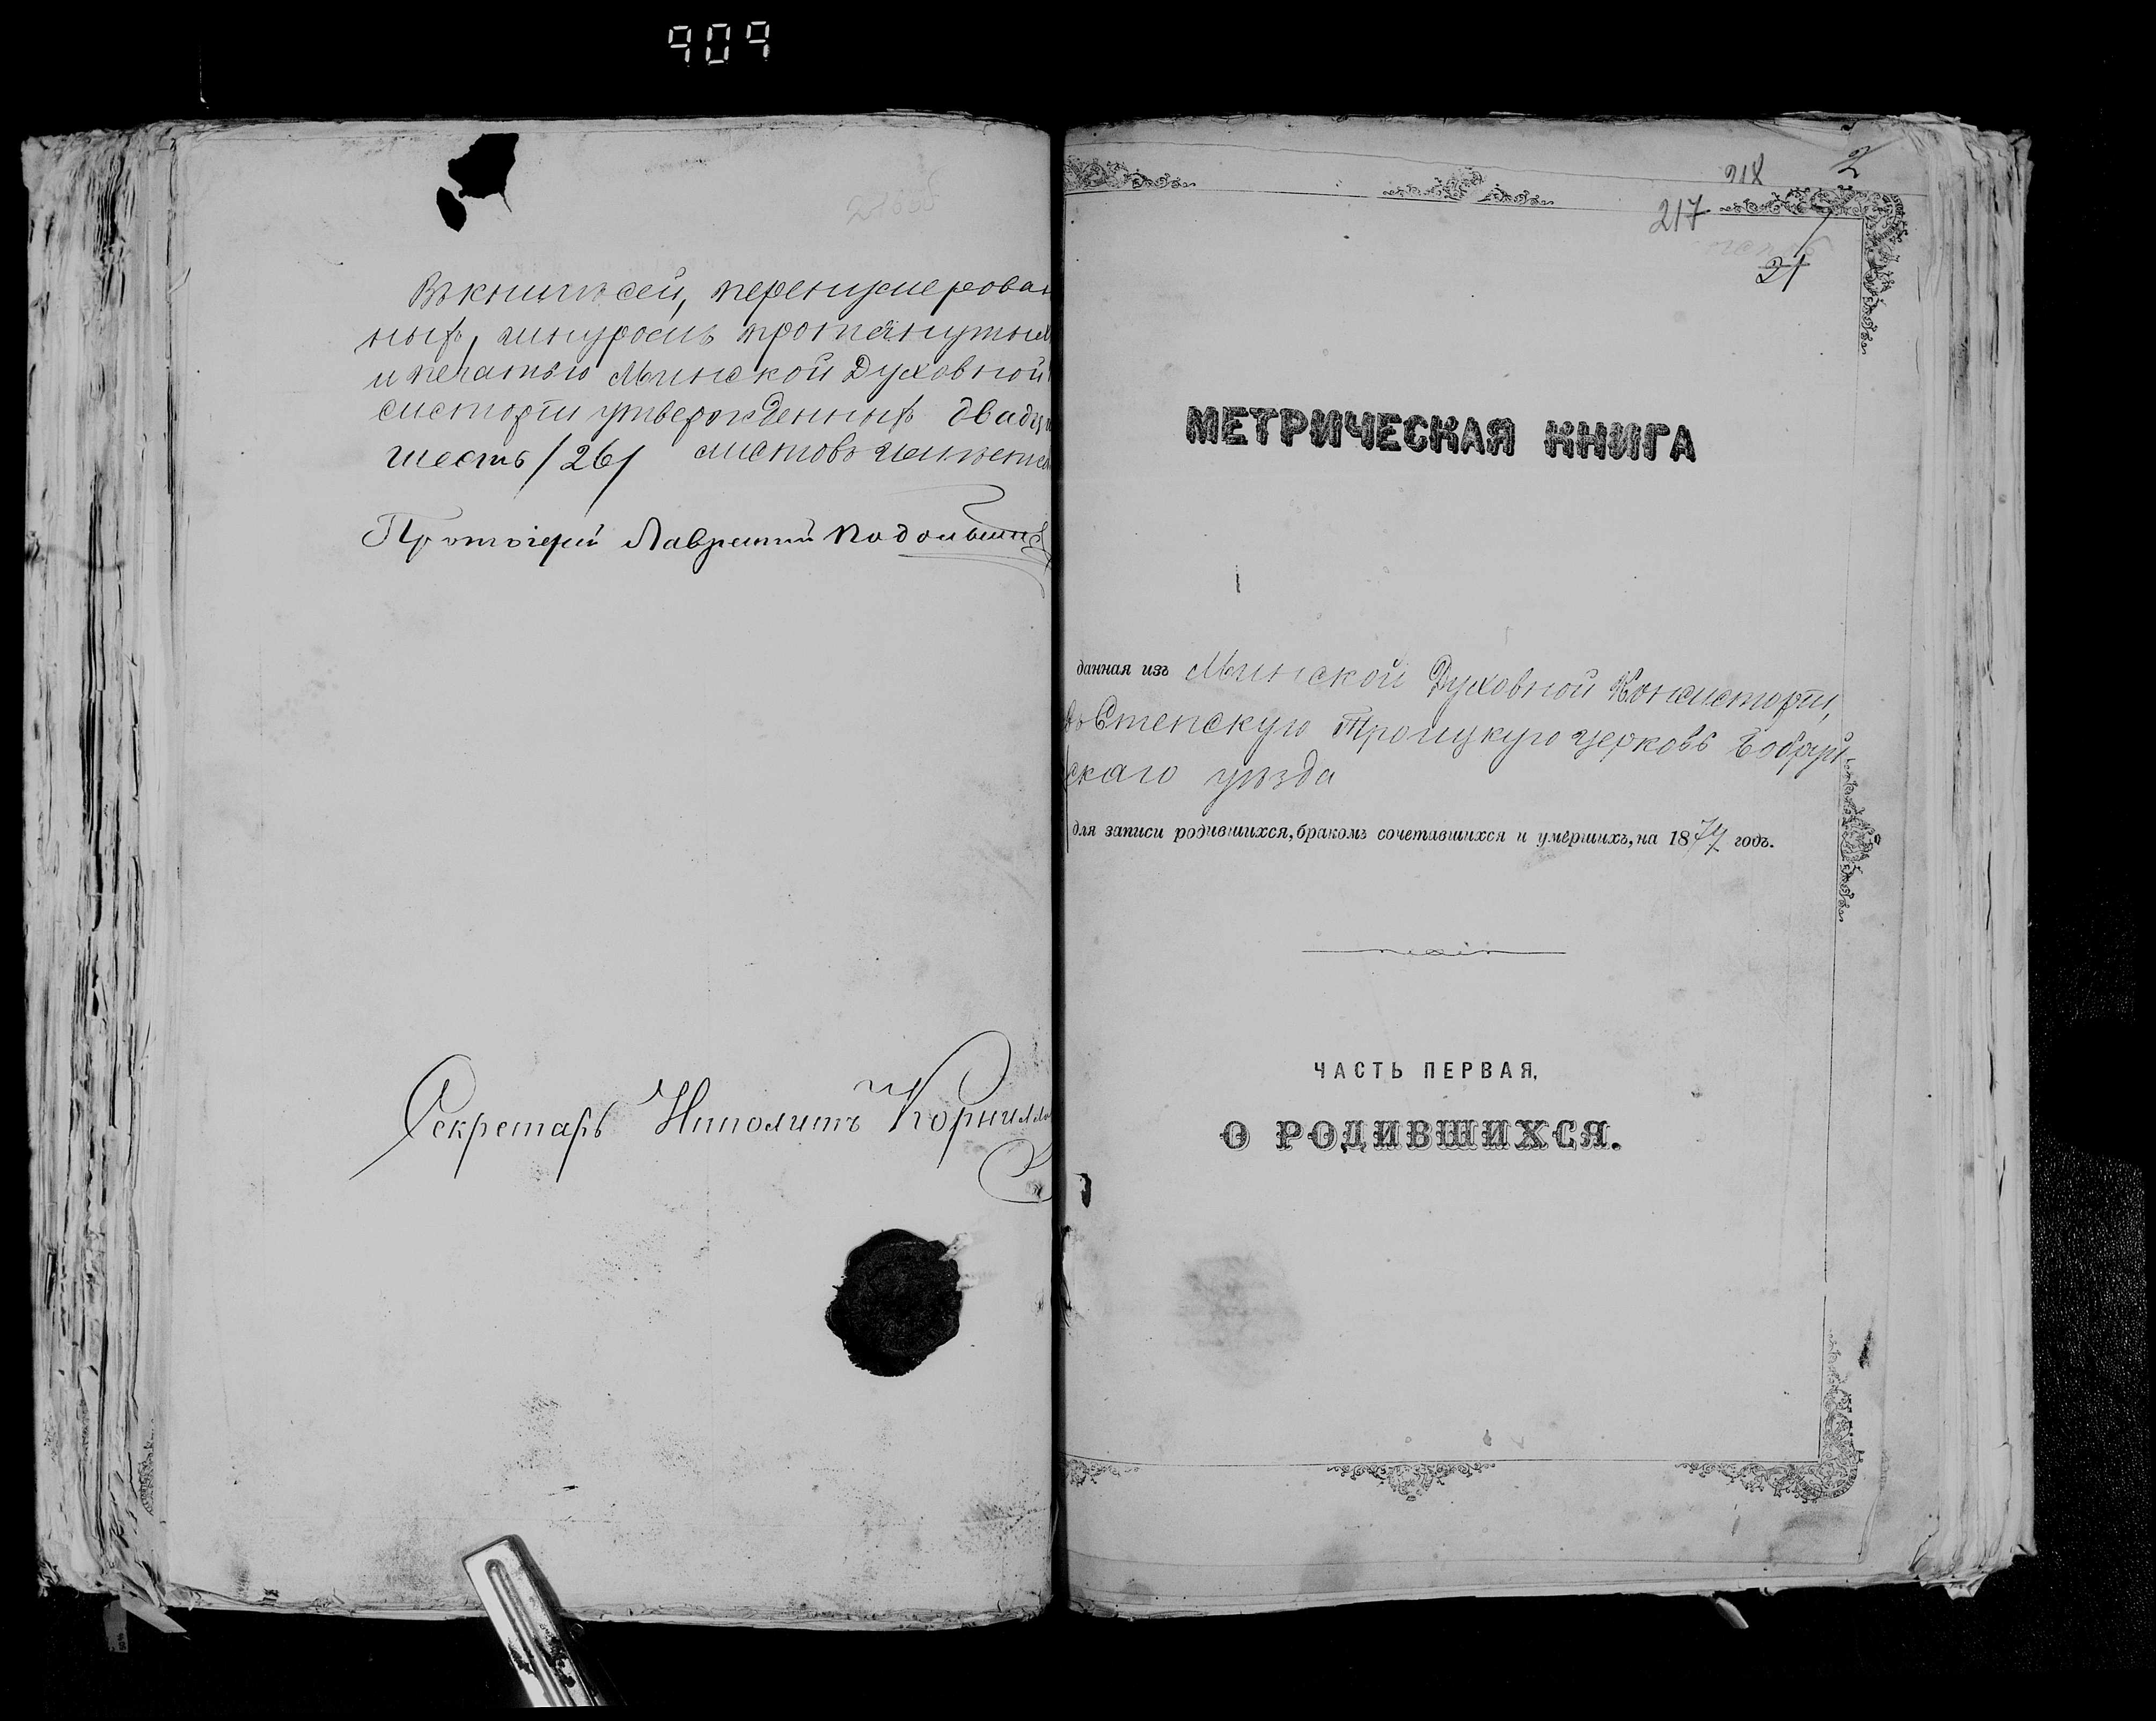 909
Въ книгѣ сей, перенумерован
ныхъ, шнуромъ протянутых
и печатью Минской Духовной
систоріи утвержденныхъ двадца
шесть /26/ листовъ имѣется
Протоіерей Лаврентій Подольскій
Секретарь Ипполитъ Корнилло
218 2
217
21
МЕТРИЧЕСКАЯ КНИГА
данная изъ Минской Духовной Консисторіи,
въ Степскую Троицкую церковь Бобруй
скаго уѣзда
для записи родившихся, бракомъ сочетавшихся и умершихъ, на 1874 годъ.
ЧАСТЬ ПЕРВАЯ,
О РОДИВШИХСЯ.